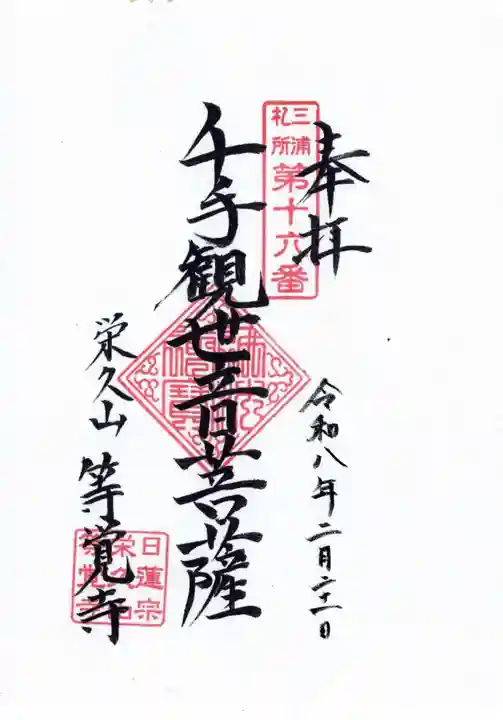 奉拝
三浦
札所
第十六番
千手観世音菩薩
令和八年二月二十一日
栄久山 等覚寺
日蓮宗
栄久山
等覚寺